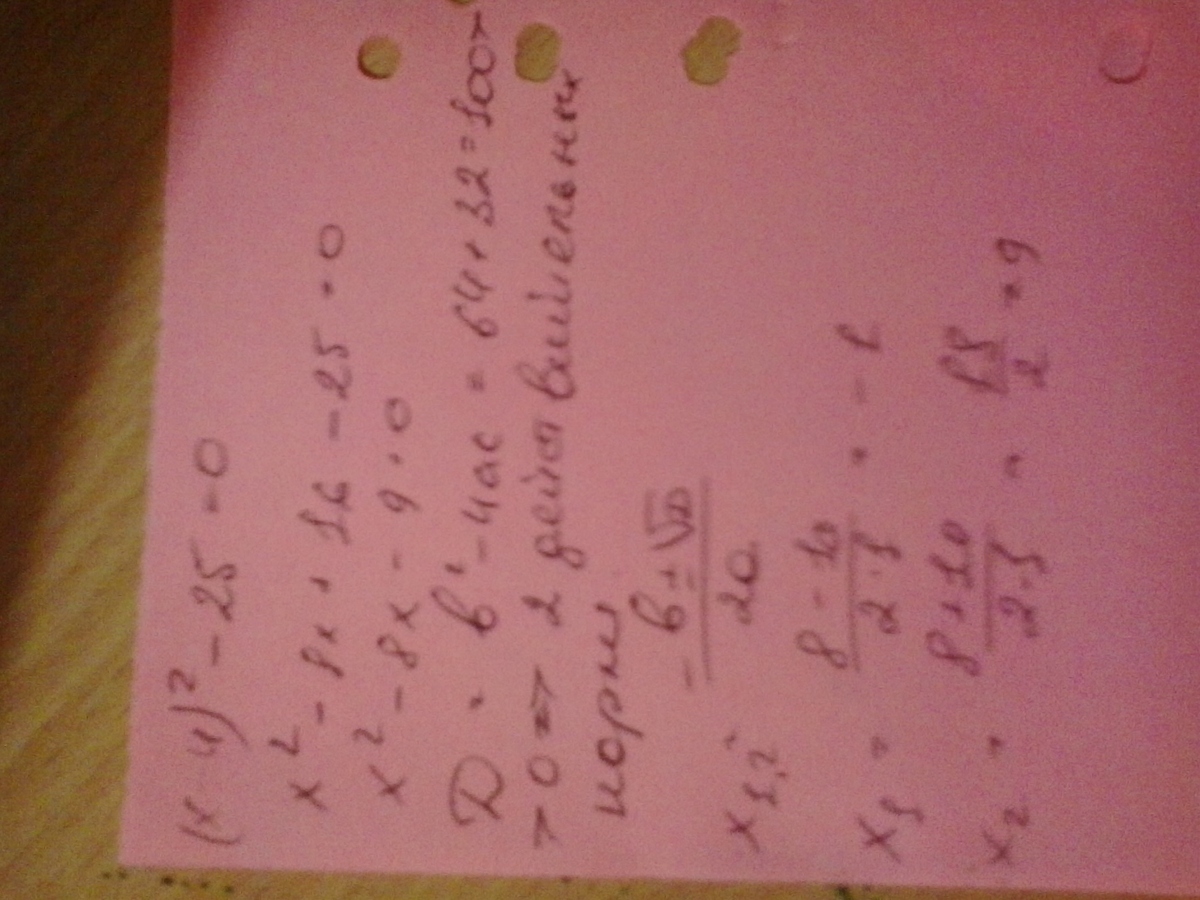 (x-4)² - 25 = 0
x² - 8x + 16 - 25 = 0
x² - 8x - 9 = 0
D = b² - 4ac = 64 + 32 = 100 >
> 0 => 2 действительных
корня
x1,2 = -b ± √D / 2a
x1 = 8 - 10 / 2·1 = -1
x2 = 8 + 10 / 2·1 = 18 / 2 = 9